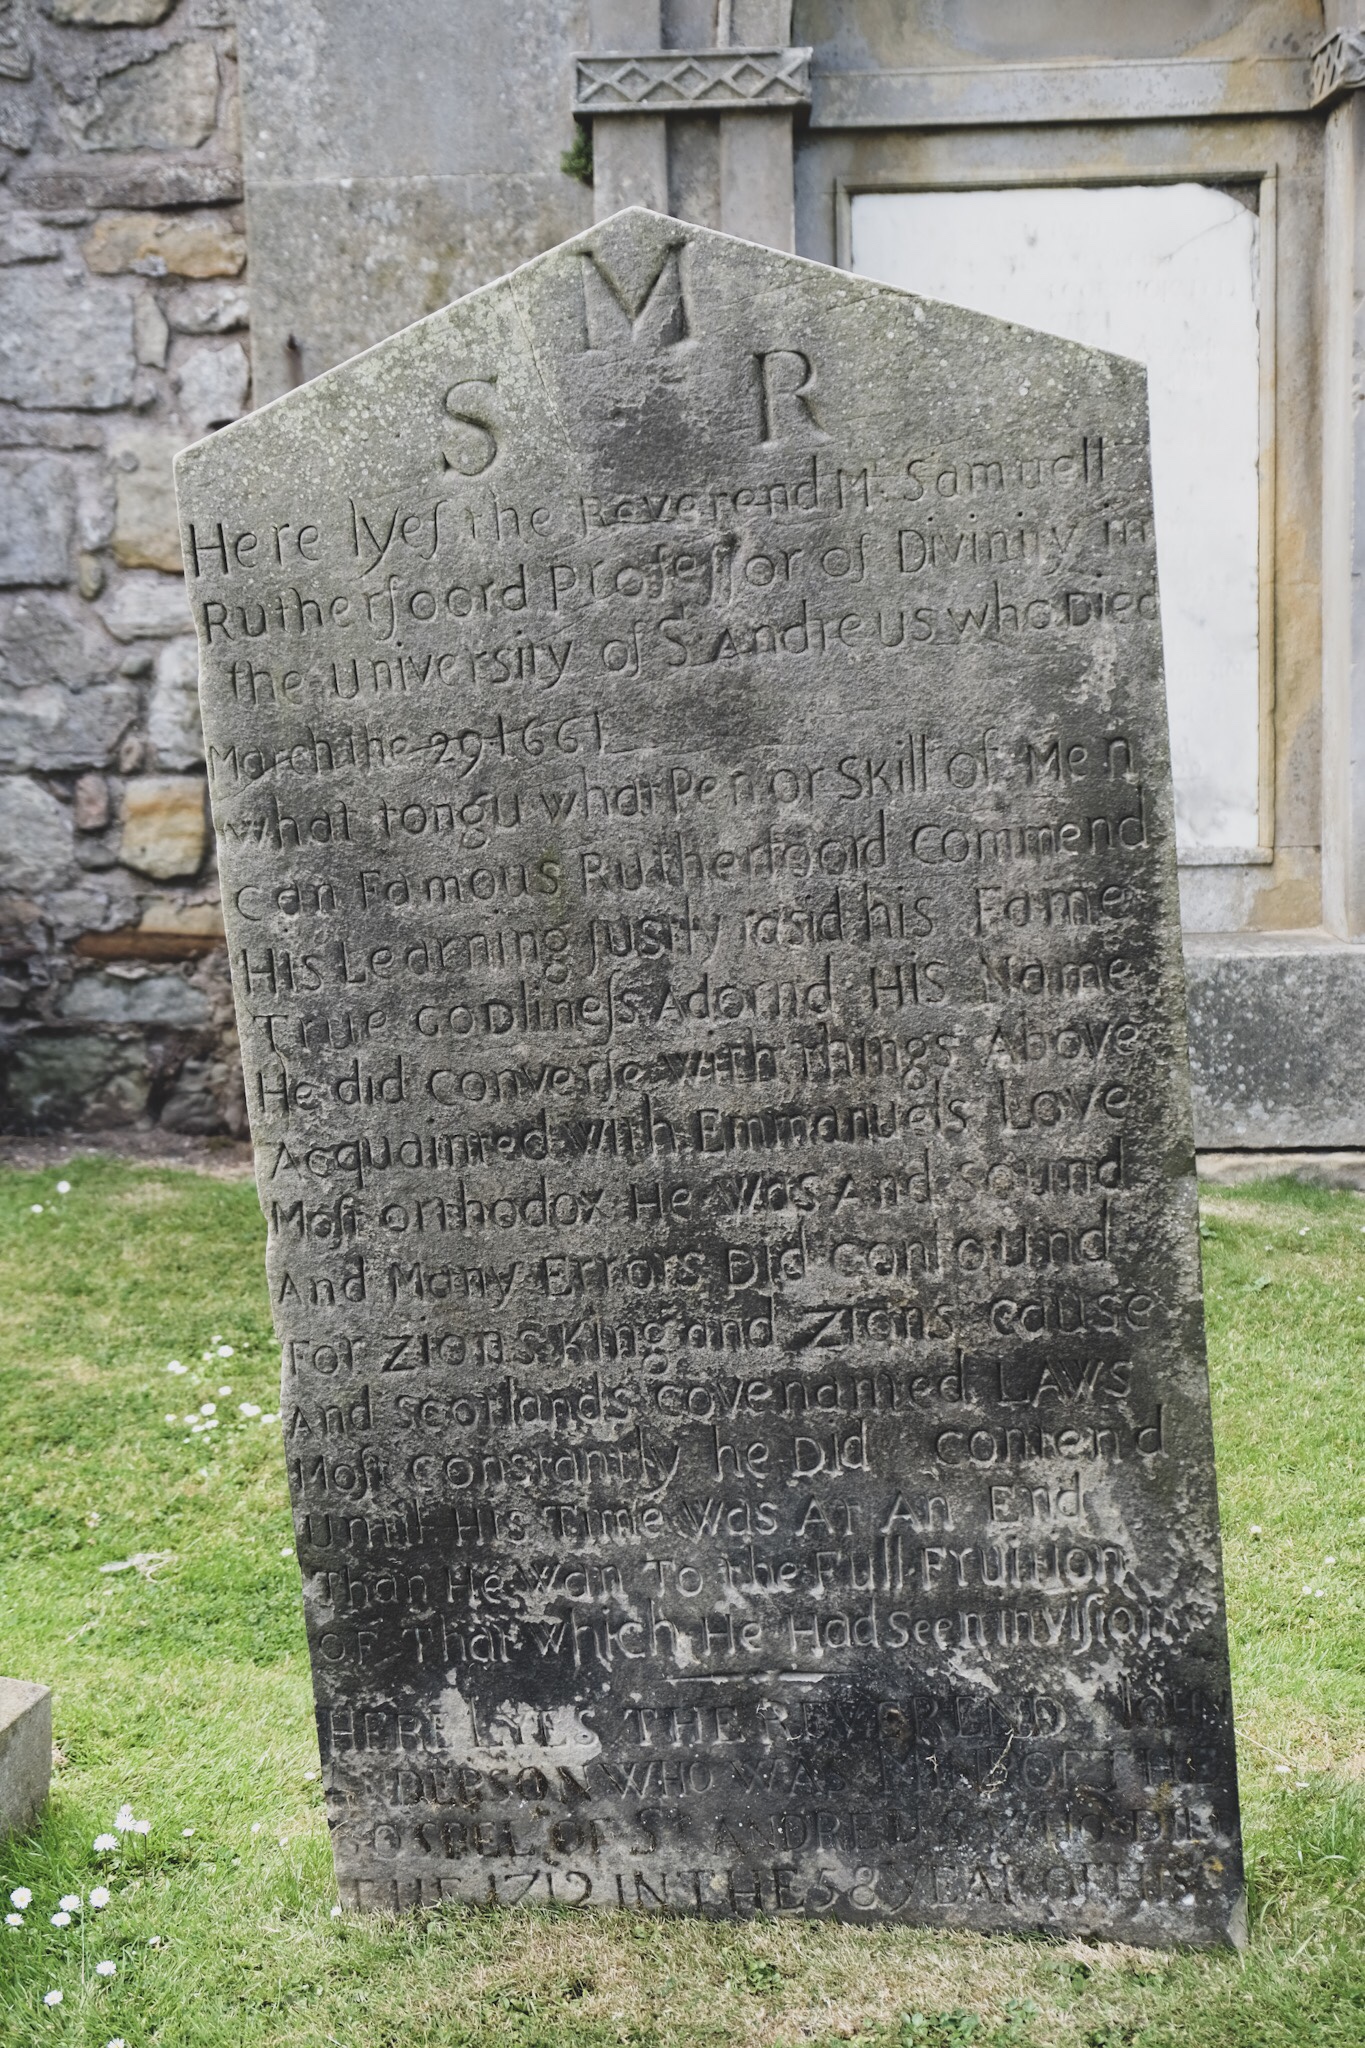 M
S R
Here lyes the Reverend Mr. Samuell
Rutherfoord Professor of Divinity in
the University of St Andreus who Died
March the 29 1661
What tongu what Pen or Skill of Men
can Famous Rutherfoord commend
His Learning justly rasid his Fame
True GODliness Adornd His Name
He did converse with things Above
Acquainted with Emmanuels Love
Most orthodox He was And sound
And Many Errors Did confound
For Zions King and Zions cause
And Scotlands covenanted LAWS
Most constantly he Did contend
Until His Time was At An End
Than He Wan To the Full Fruition
OF That which He Had Seen in vision
HERE LYES THE REVEREND
WHO WAS OF THE
GOSPEL OF St ANDREUS WHO DIED
THE 1712 IN THE 58 YEAR OF HIS